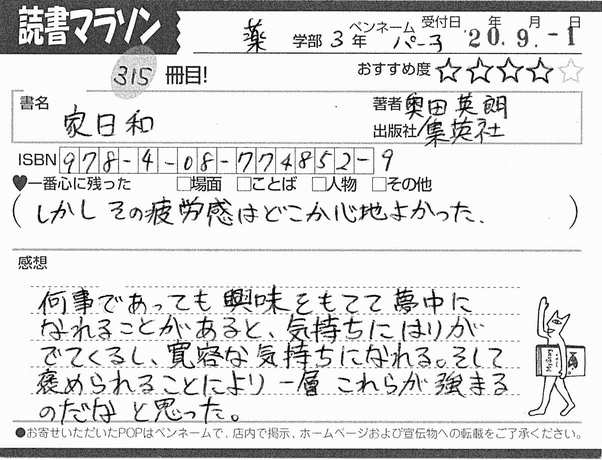 読書マラソン
薬 学部 3 年 ペンネーム パー子 受付日 '20. 9. -1 年 月 日
315 冊目!
おすすめ度 ☆☆☆☆☆
書名 家日和
著者 奥田英朗
出版社 集英社
ISBN 978-4-08-774852-9
♥一番心に残った □場面 □ことば □人物 □その他
(しかしその疲労感はどこか心地よかった、)
感想
何事であっても興味をもてて夢中に
なれることがあると、気持ちにはりが
でてくるし、寛容な気持ちになれる。そして
褒められることにより一層これらが強まる
のだなと思った。
●お寄せいただいたPOPはペンネームで、店内で掲示、ホームページおよび宣伝物への転載をご了承ください。